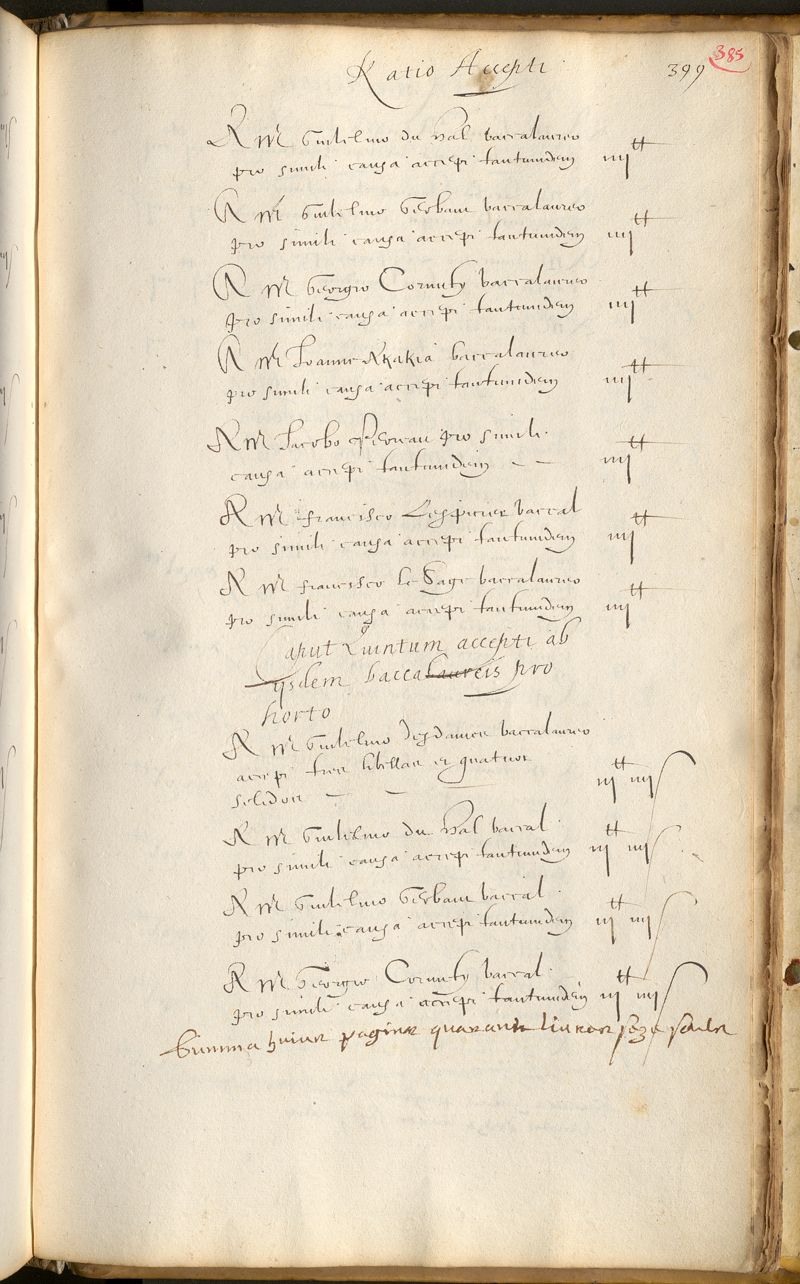 Ratio Accepti
399
385
A M Guilielmo du Val baccalaureo
pro simili causa accepi tantumdem iiii tt
A M Guilielmo Gerbaut baccalaureo
pro simili causa accepi tantumdem iiii tt
A M Georgio Cornuty baccalaureo
pro simili causa accepi tantumdem iiii tt
A M Joanne Akakia baccalaureo
pro simili causa accepi tantumdem iiii tt
A M Jacobo pro simili
causa accepi tantumdem iiii tt
A M francisco Lespicier baccal
pro simili causa accepi tantumdem iiii tt
A M francisco Le Sage baccalaureo
pro simili causa accepi tantumdem iiii tt
Caput Quintum accepti ab
ijsdem baccalaureis pro
horto
A M Guilielmo baccalaureo
accepi tres libellas et quatuor
solidos iii tt iiii s
A M Guilielmo du Val baccal
pro simili causa accepi tantumdem iii tt iiii s
A M Guilielmo Gerbaut baccal
pro simili causa accepi tantumdem iii tt iiii s
A M Georgio Cornuty baccal
pro simili causa accepi tantumdem iii tt iiii s
Summa huius paginæ quarante livres seze soules